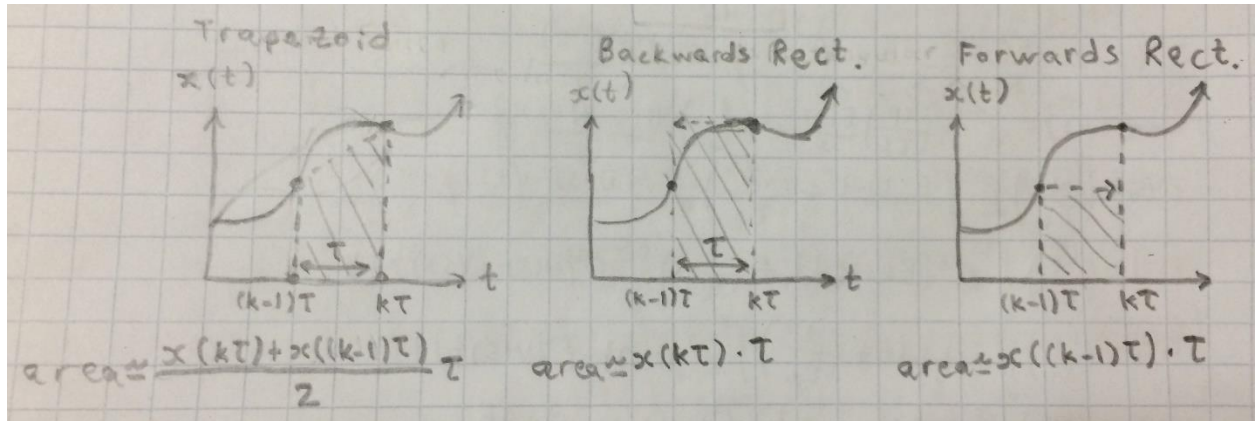 Trapezoid
x(t)
τ
t
(k-1)τ
kτ
area≃ x(kτ)+x((k-1)τ)
2
τ
Backwards Rect.
x(t)
τ
t
(k-1)τ
kτ
area≃x(kτ)·τ
Forwards Rect.
x(t)
(k-1)τ
kτ
area≃x((k-1)τ)·τ